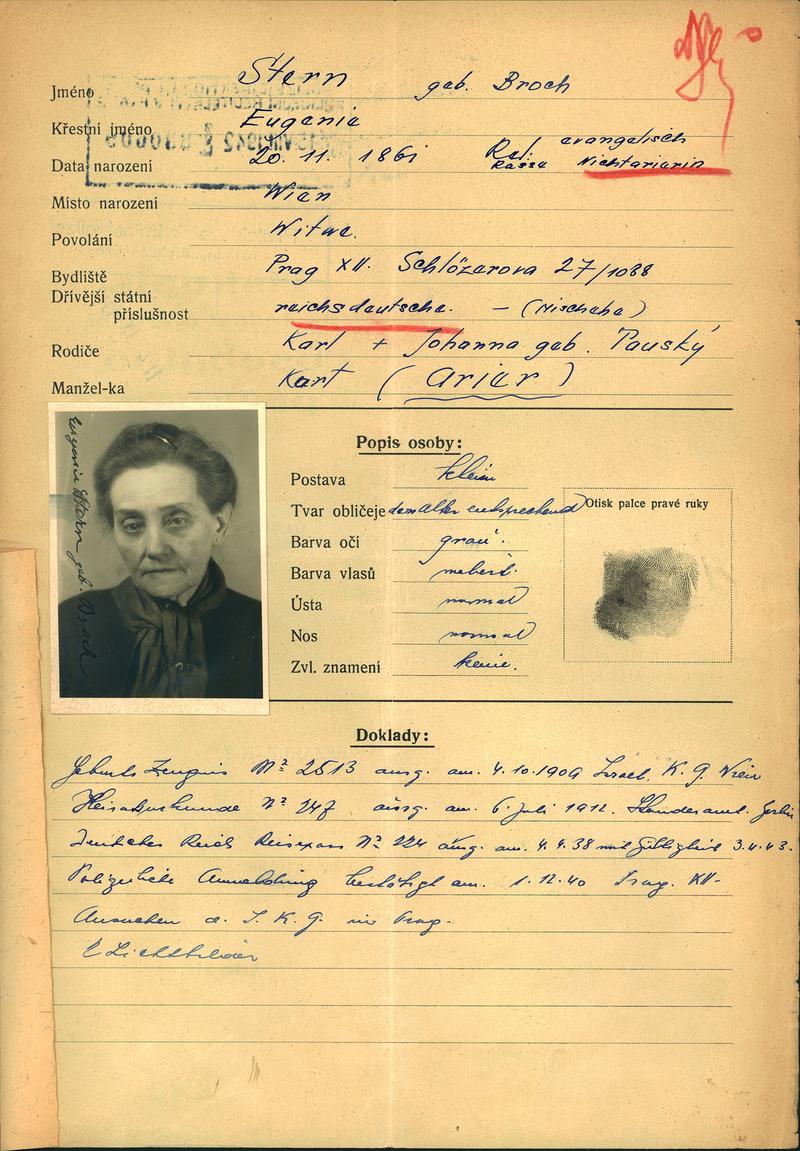 Jméno Stern gab. Broch
Křestní jméno Eugenie
Data narození 20. 11. 1861 Rel. evangelisch
Rasse Nichtarierin
Místo narození Wien
Povolání Witwe.
Bydliště Prag XII. Schlözerova 27/1088
Dřívější státní
příslušnost reichsdeutsche. — (Mischehe)
Rodiče Karl + Johanna geb. Pauský
Manžel-ka Kurt (Arier)
Popis osoby:
Postava klein
Tvar obličeje dem Alter entsprechend
Barva očí grau.
Barva vlasů meliert.
Ústa normal
Nos normal
Zvl. znamení keine.
Otisk palce pravé ruky
Eugenie Stern geb. Broch
Doklady:
Geburts Zeugnis Nº 2513 ausg. am. 4.10.1909 Israel. K. G. Wien
Heiratsurkunde Nº 247 ausg. am 6. Juli 1912. Standesamt.
Deutsches Reich Reisepass Nº 224 ausg. am. 4.4.38 mit Gültigkeit 3.4.43.
Polizeiliche Anmeldung bestätigt am. 1.12.40 Prag. XII-
Ansuchen a. I. K. G. in Prag.
2 Lichtbilder